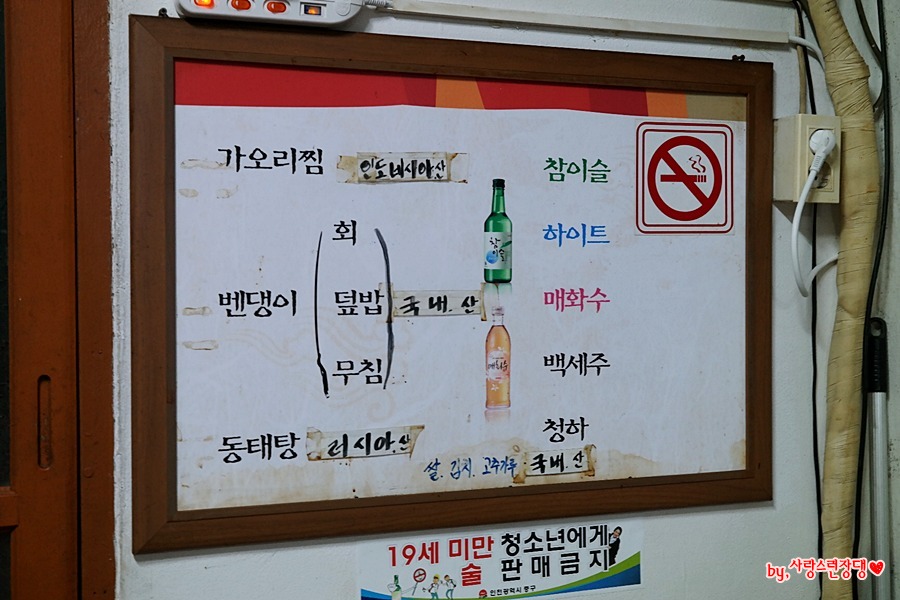 가오리찜 인도네시아산
벤댕이 회
덮밥 국내.산
무침
동태탕 러시아.산
참이슬
하이트
매화수
백세주
청하
쌀.김치.고추가루.국내.산
참이슬
매화수
19세 미만 청소년에게
술 판매금지
인천광역시 중구
by,사랑스런장댕